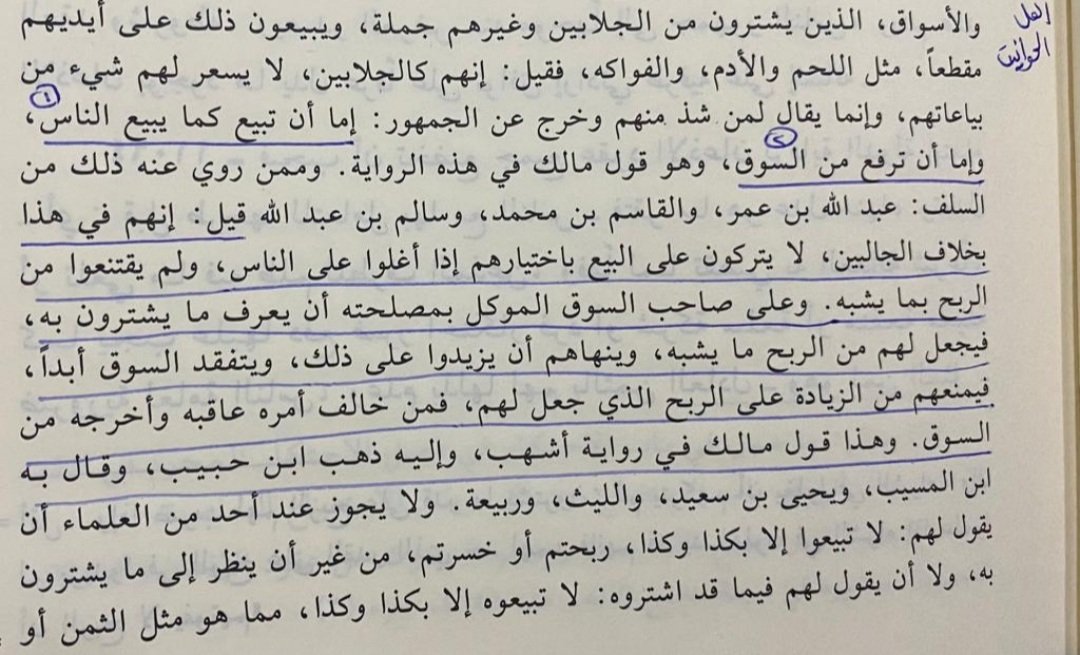 والأسواق، الذين يشترون من الجلابين وغيرهم جملة، ويبيعون ذلك على أيديهم
أهل
الحوانيت
مقطعاً، مثل اللحم والأدم، والفواكه، فقيل: إنهم كالجلابين، لا يسعر لهم شيء من
بياعاتهم، وإنما يقال لمن شذ منهم وخرج عن الجمهور: إما أن تبيع كما يبيع الناس،
وإما أن ترفع من السوق، وهو قول مالك في هذه الرواية. وممن روي عنه ذلك من
السلف: عبد الله بن عمر، والقاسم بن محمد، وسالم بن عبد الله قيل: إنهم في هذا
بخلاف الجالبين، لا يتركون على البيع باختيارهم إذا أغلوا على الناس، ولم يقتنعوا من
الربح بما يشبه. وعلى صاحب السوق الموكل بمصلحته أن يعرف ما يشترون به،
فيجعل لهم من الربح ما يشبه، وينهاهم أن يزيدوا على ذلك، ويتفقد السوق أبداً،
فيمنعهم من الزيادة على الربح الذي جعل لهم، فمن خالف أمره عاقبه وأخرجه من
السوق. وهذا قول مالك في رواية أشهب، وإليه ذهب ابن حبيب، وقال به
ابن المسيب، ويحيى بن سعيد، والليث، وربيعة. ولا يجوز عند أحد من العلماء أن
يقول لهم: لا تبيعوا إلا بكذا وكذا، ربحتم أو خسرتم، من غير أن ينظر إلى ما يشترون
به، ولا أن يقول لهم فيما قد اشتروه: لا تبيعوه إلا بكذا وكذا، مما هو مثل الثمن أو